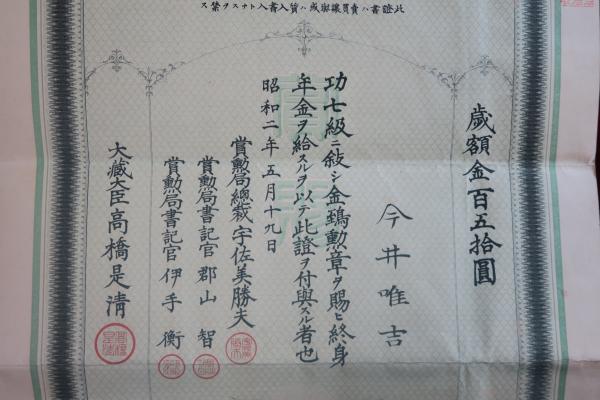 此證書ハ賣買讓與或ハ質入書入トナスヲ禁ス
歲額金百五拾圓
今井唯吉
功七級ニ敍シ金鵄勲章ヲ賜ヒ終身
年金ヲ給スルヲ以テ此證ヲ付與スル者也
昭和二年五月十九日
賞勲局總裁宇佐美勝夫
賞勲局書記官郡山智
賞勲局書記官伊手衡
大藏大臣高橋是清